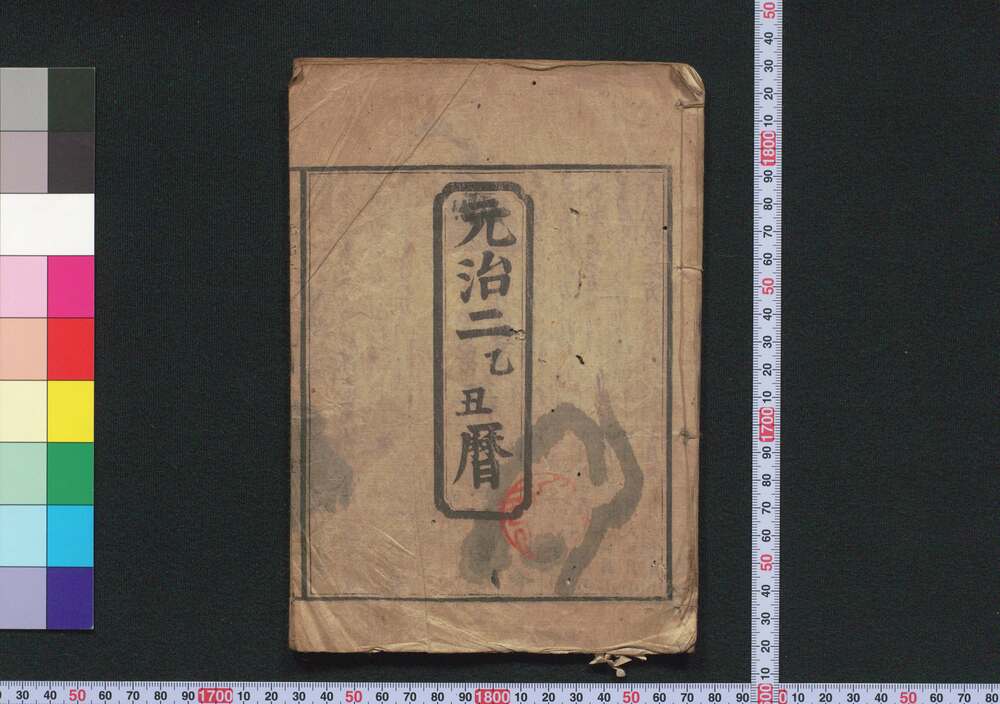 元治二乙丑暦
50
40
30
20
10
1800
90
80
70
60
50
40
30
20
10
1700
90
80
70
60
50
40
30
20
10
30 40 50 60 70 80 90 1700 10 20 30 40 50 60 70 80 90 1800 10 20 30 40 50 60 70 80 90 10 20 30 40 50 60 70 80